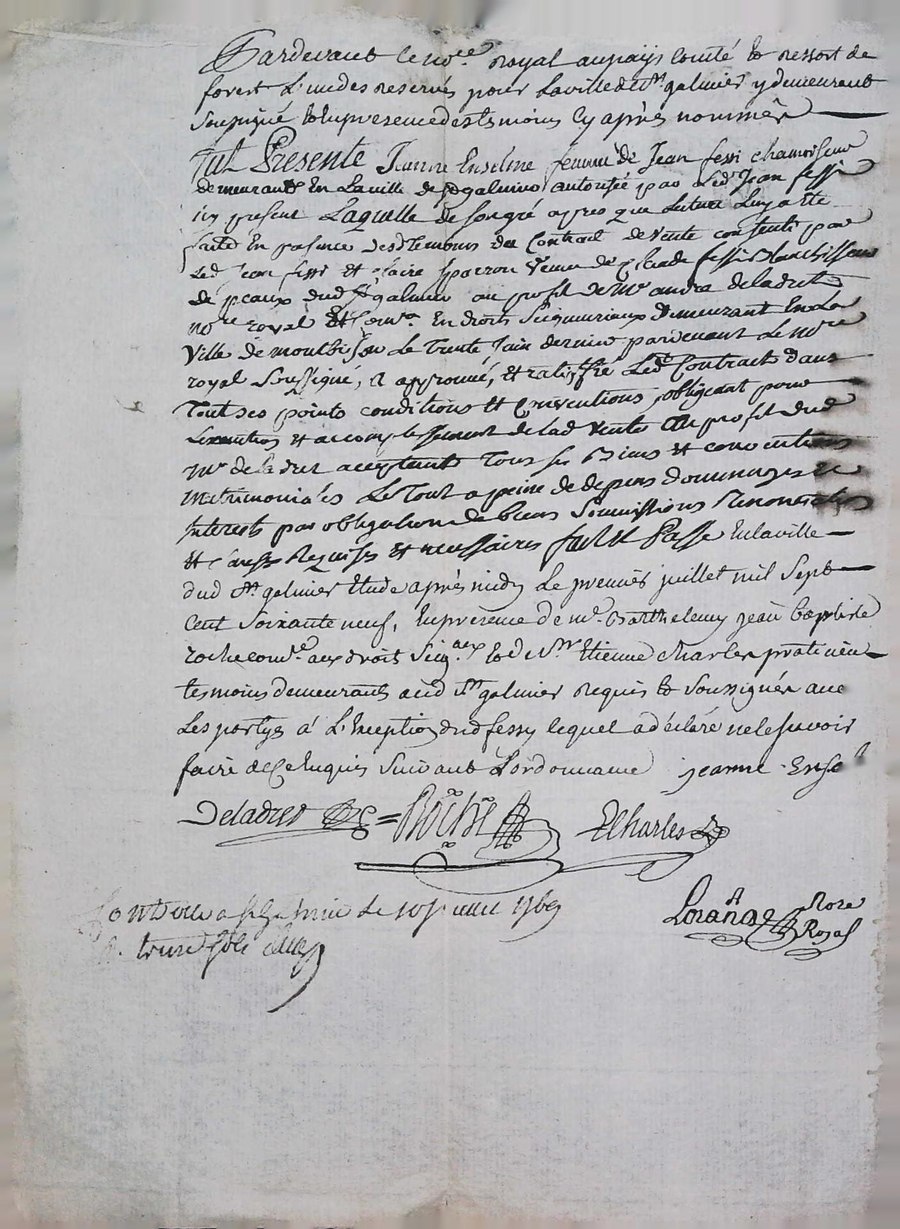 Pardevant le no.re royal au païs comté & ressort de
forest L'un des reservés pour la ville de St galmier y demeurant
soussigné & en presence des temoins cy après nommés
fut Presente Jeanne Enselme femme de Jean fessi chamoiseur
demeurants En la ville de St galmier autorisée par led Jean fessi
icy present Laquelle de son gré apres que lecture Luy a été
faite En presence desd temoins du Contrat de vente consenti par
Led Jean fessi et claire veuve de fessi Blanchisseur
de peaux dud St galmier au profit de Me andré deladret
no.re royal Et Com.re En droits Seigneuriaux demeurant En La
Ville de montbrison Le Trente Juin dernier pardevant Le no.re
royal Soussigné, a approuvé, et ratiffié Led Contract dans
Tout ses points conditions Et Conventions, obligeant pour
Lexecution et accomplissement de lad vente au profit dud
Me deladret acceptant Tous ses Biens et conventions
matrimoniales Le Tout a peine de depens dommages et
Interets par obligation de biens Soumissions Renonciations
et clauses Requises et necessaires fait et Passé En la ville
dud St galmier Etude après midy Le premier juillet mil Sept
Cent Soixante neuf, En presence de me Barthelemy jean baptiste
roche com.re aux droits Seig.aux & de Sr Etienne charles praticien
temoins demeurants aud St galmier requis & Soussignés avec
Les partyes à L'Exception dud fessy lequel a déclaré ne le savoir
faire de ce Enquis Suivant L'ordonnance jeanne Ense
Deladret = Roche ECharles
Controllé a St galmier le 10 juillet 1769
R. treize sols
Lorange Nore
Royal